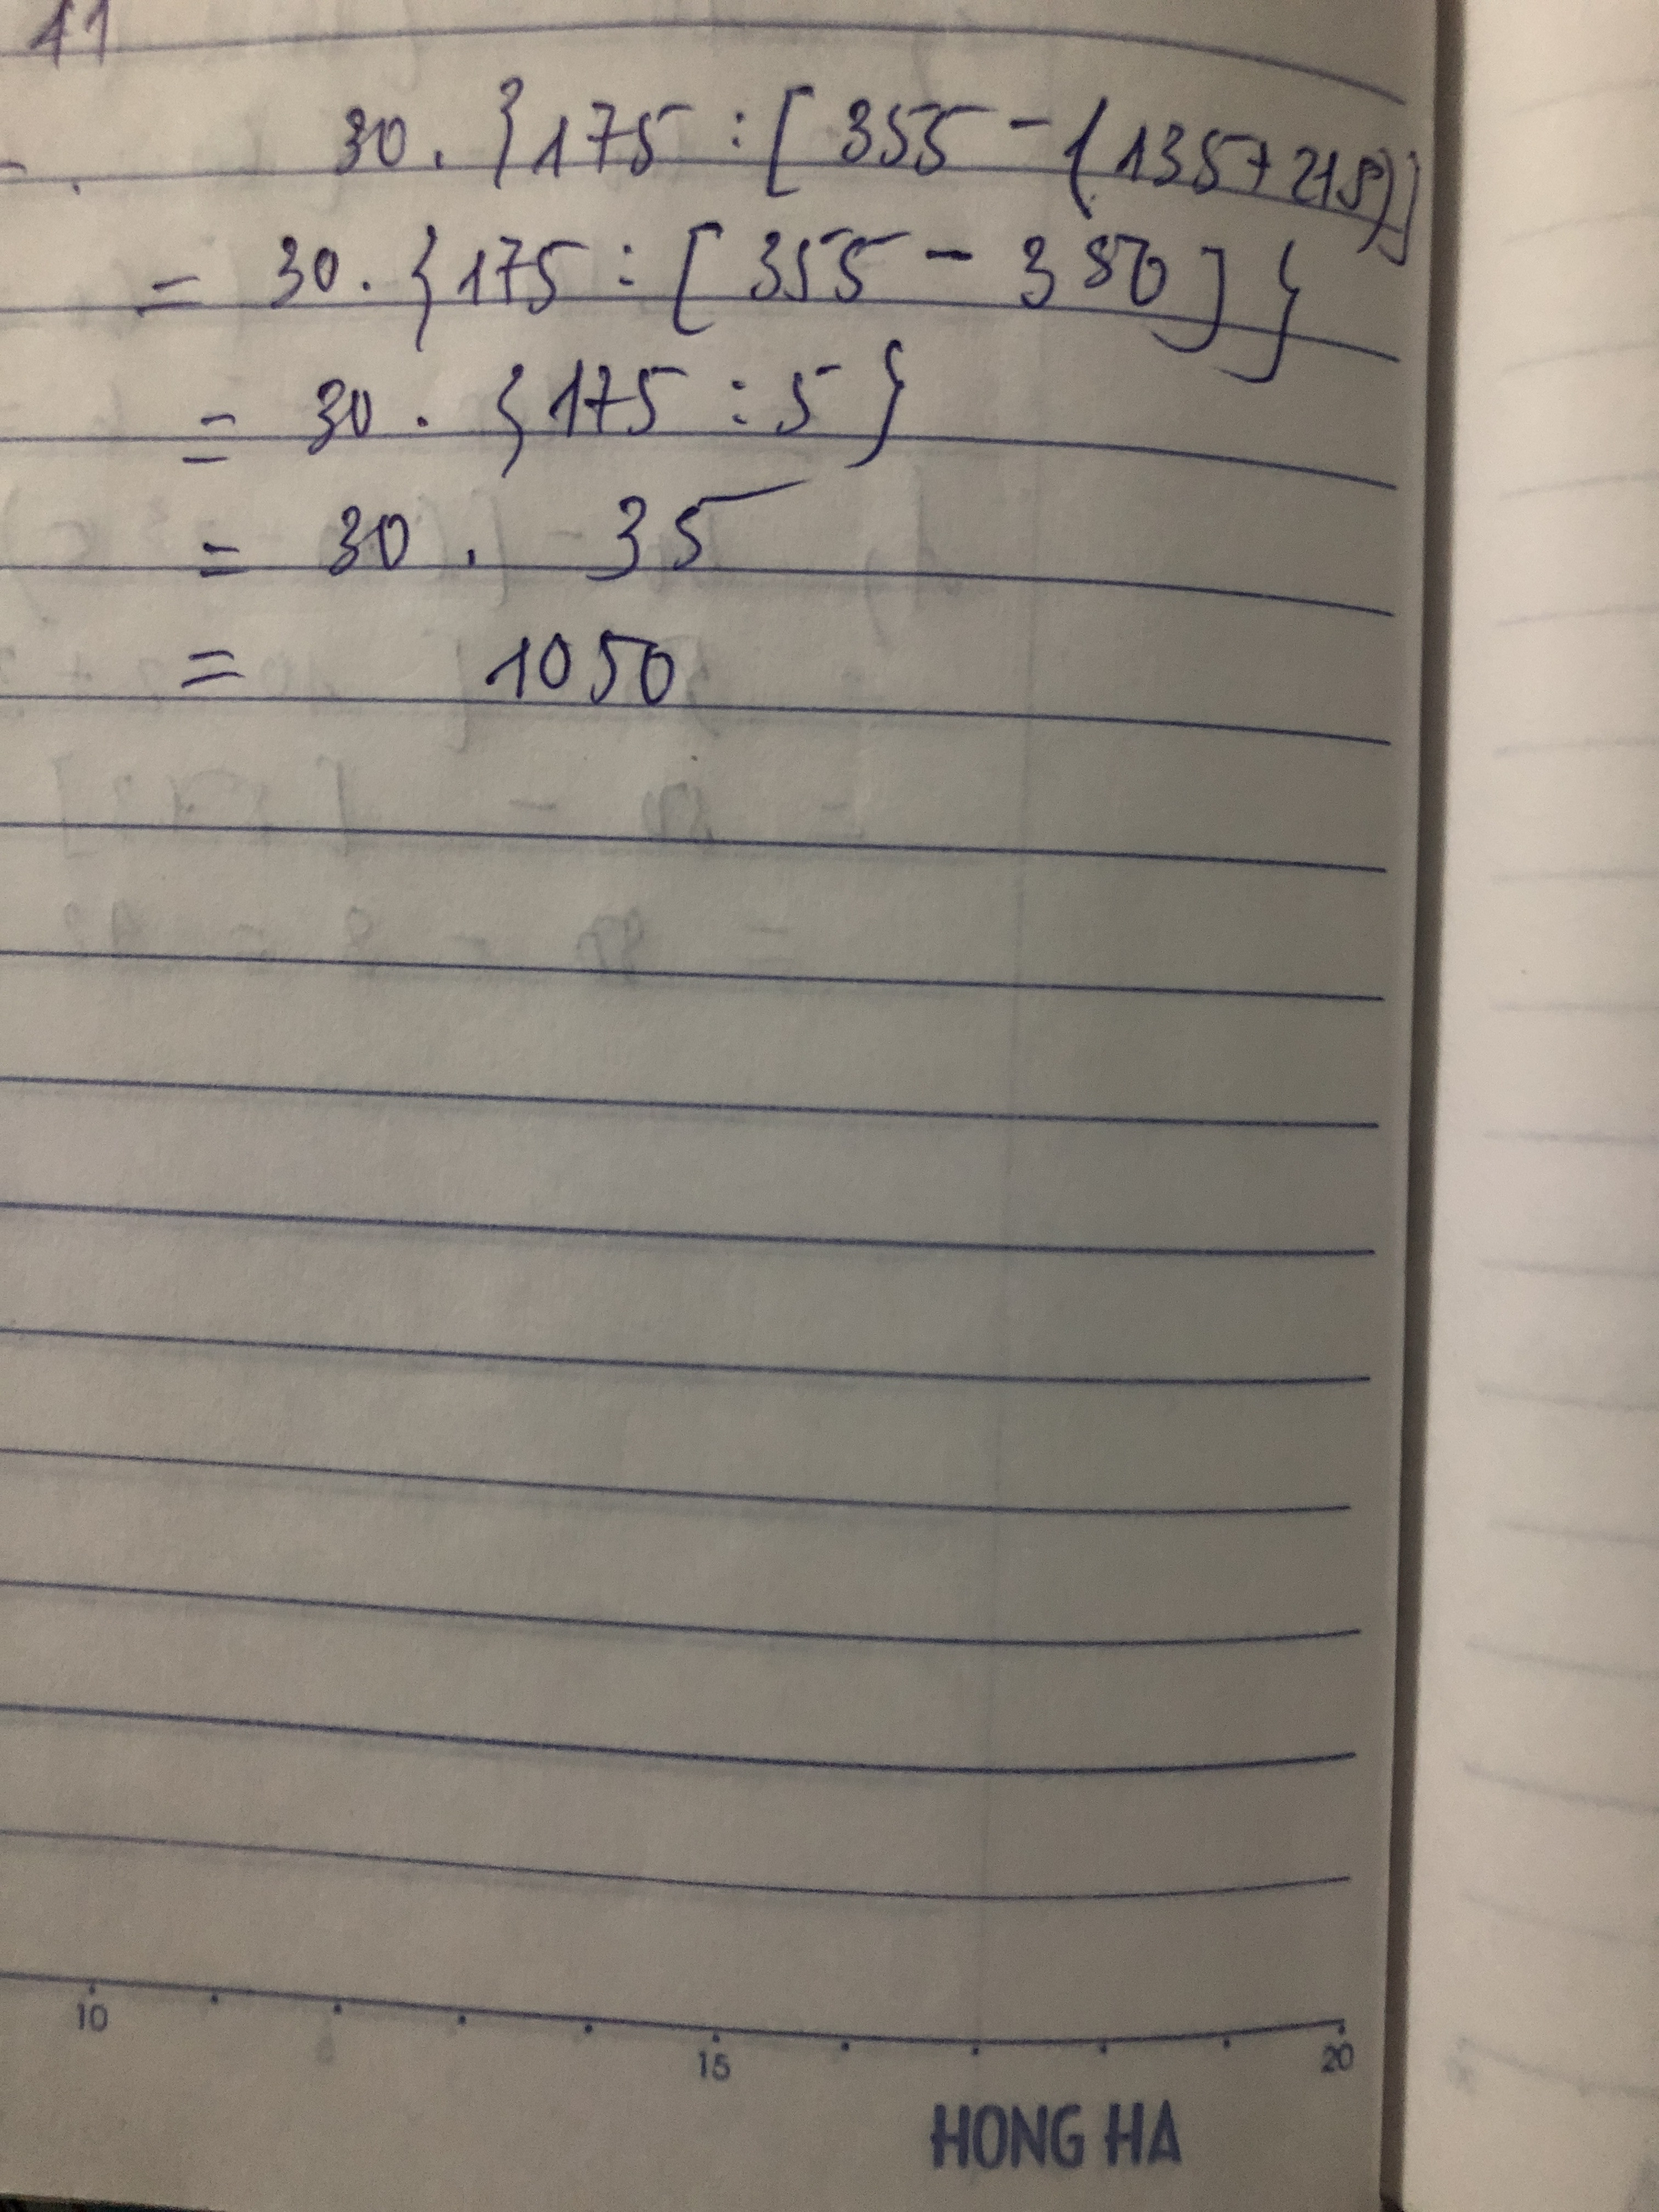 11
30. }175 : [355 - (135+215)]
= 30. {175 : [355 - 350]}
= 30 . {175 : 5}
= 30 . 35
= 1050
10 15 20
HONG HA